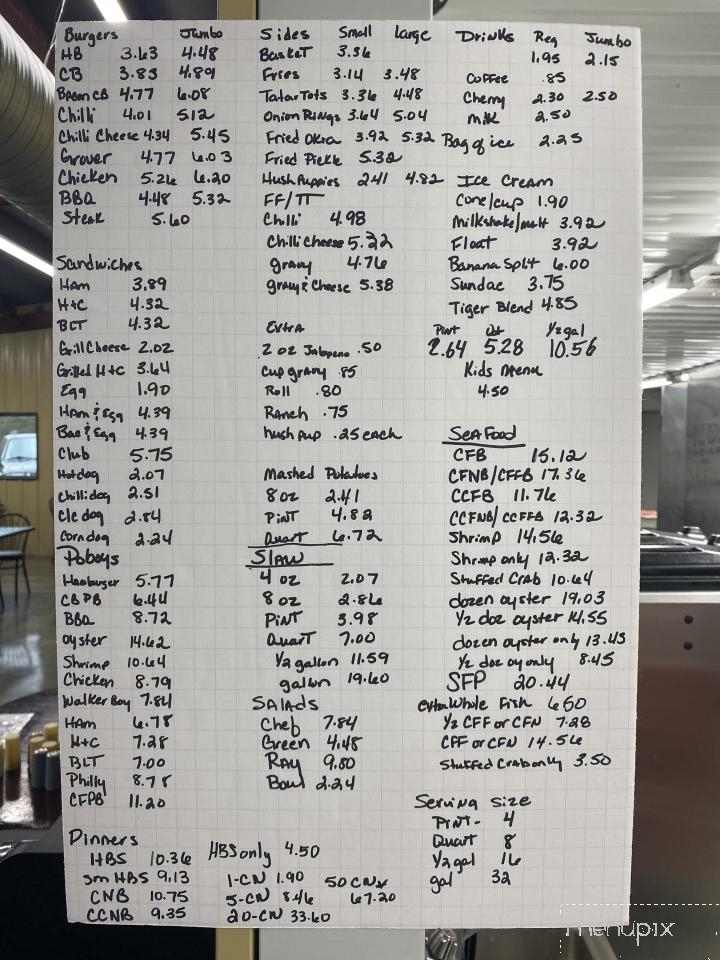 Burgers Jumbo
HB 3.63 4.48
CB 3.83 4.89
Bacon CB 4.77 6.08
Chilli 4.01 5.12
Chilli Cheese 4.34 5.45
Grover 4.77 6.03
Chicken 5.26 6.20
BBQ 4.48 5.32
Steak 5.60
Sandwiches
HAm 3.89
H+C 4.32
BLT 4.32
Grill Cheese 2.02
Grilled H+C 3.64
Egg 1.90
HAm & Egg 4.39
Bac & Egg 4.39
Club 5.75
Hotdog 2.07
Chillidog 2.51
CLC dog 2.84
Corndog 2.24
Poboys
Hamburger 5.77
CBPB 6.44
BBQ 8.72
Oyster 14.62
Shrimp 10.64
Chicken 8.79
Walker Boy 7.84
HAm 6.78
H+C 7.28
BLT 7.00
Philly 8.78
CFPB 11.20
Dinners
HBS 10.36
Sm HBS 9.13
CNB 10.75
CCNB 9.35
HBS only 4.50
1-CN 1.90 50 CNs
5-CN 8.46 67.20
20-CN 33.60
Sides Small Large
Basket 3.36
Fries 3.14 3.48
TatarTots 3.36 4.48
Onion Rings 3.64 5.04
Fried Okra 3.92 5.32
Fried Pickle 5.32
Hush Puppies 2.41 4.82
FF/TT
Chilli 4.98
Chilli Cheese 5.32
gravy 4.76
gravy & Cheese 5.38
Extra
2 oz Jalapeno .50
Cup gravy .85
Roll .80
Ranch .75
hush pup .25 each
Mashed Potatoes
8 oz 2.41
Pint 4.82
Quart 6.72
Slaw
4 oz 2.07
8 oz 2.86
Pint 3.98
Quart 7.00
1/2 gallon 11.59
gallon 19.60
SALADS
Chef 7.84
Green 4.48
Ray 9.80
Bowl 2.24
Drinks Reg Jumbo
1.95 2.15
Coffee .85
Cherry 2.30 2.50
milk 2.50
Bag of ice 2.25
Ice Cream
Cone/cup 1.90
Milkshake/malt 3.92
Float 3.92
Banana Split 6.00
Sundae 3.75
Tiger Blend 4.85
Pint Qt 1/2 gal
2.64 5.28 10.56
Kids Menu
4.50
Seafood
CFB 15.12
CFNB/CFFB 17.36
CCFB 11.76
CCFNB/CCFFB 12.32
Shrimp 14.56
Shrimp only 12.32
Stuffed Crab 10.64
dozen oyster 19.03
1/2 doz oyster 14.55
dozen oyster only 13.43
1/2 doz oy only 8.45
SFP 20.44
extra Whole Fish 6.50
1/2 CFF or CFN 7.28
CFF or CFN 14.56
Stuffed Crab only 3.50
Serving Size
Pint - 4
Quart 8
1/2 gal 16
gal 32
menupix